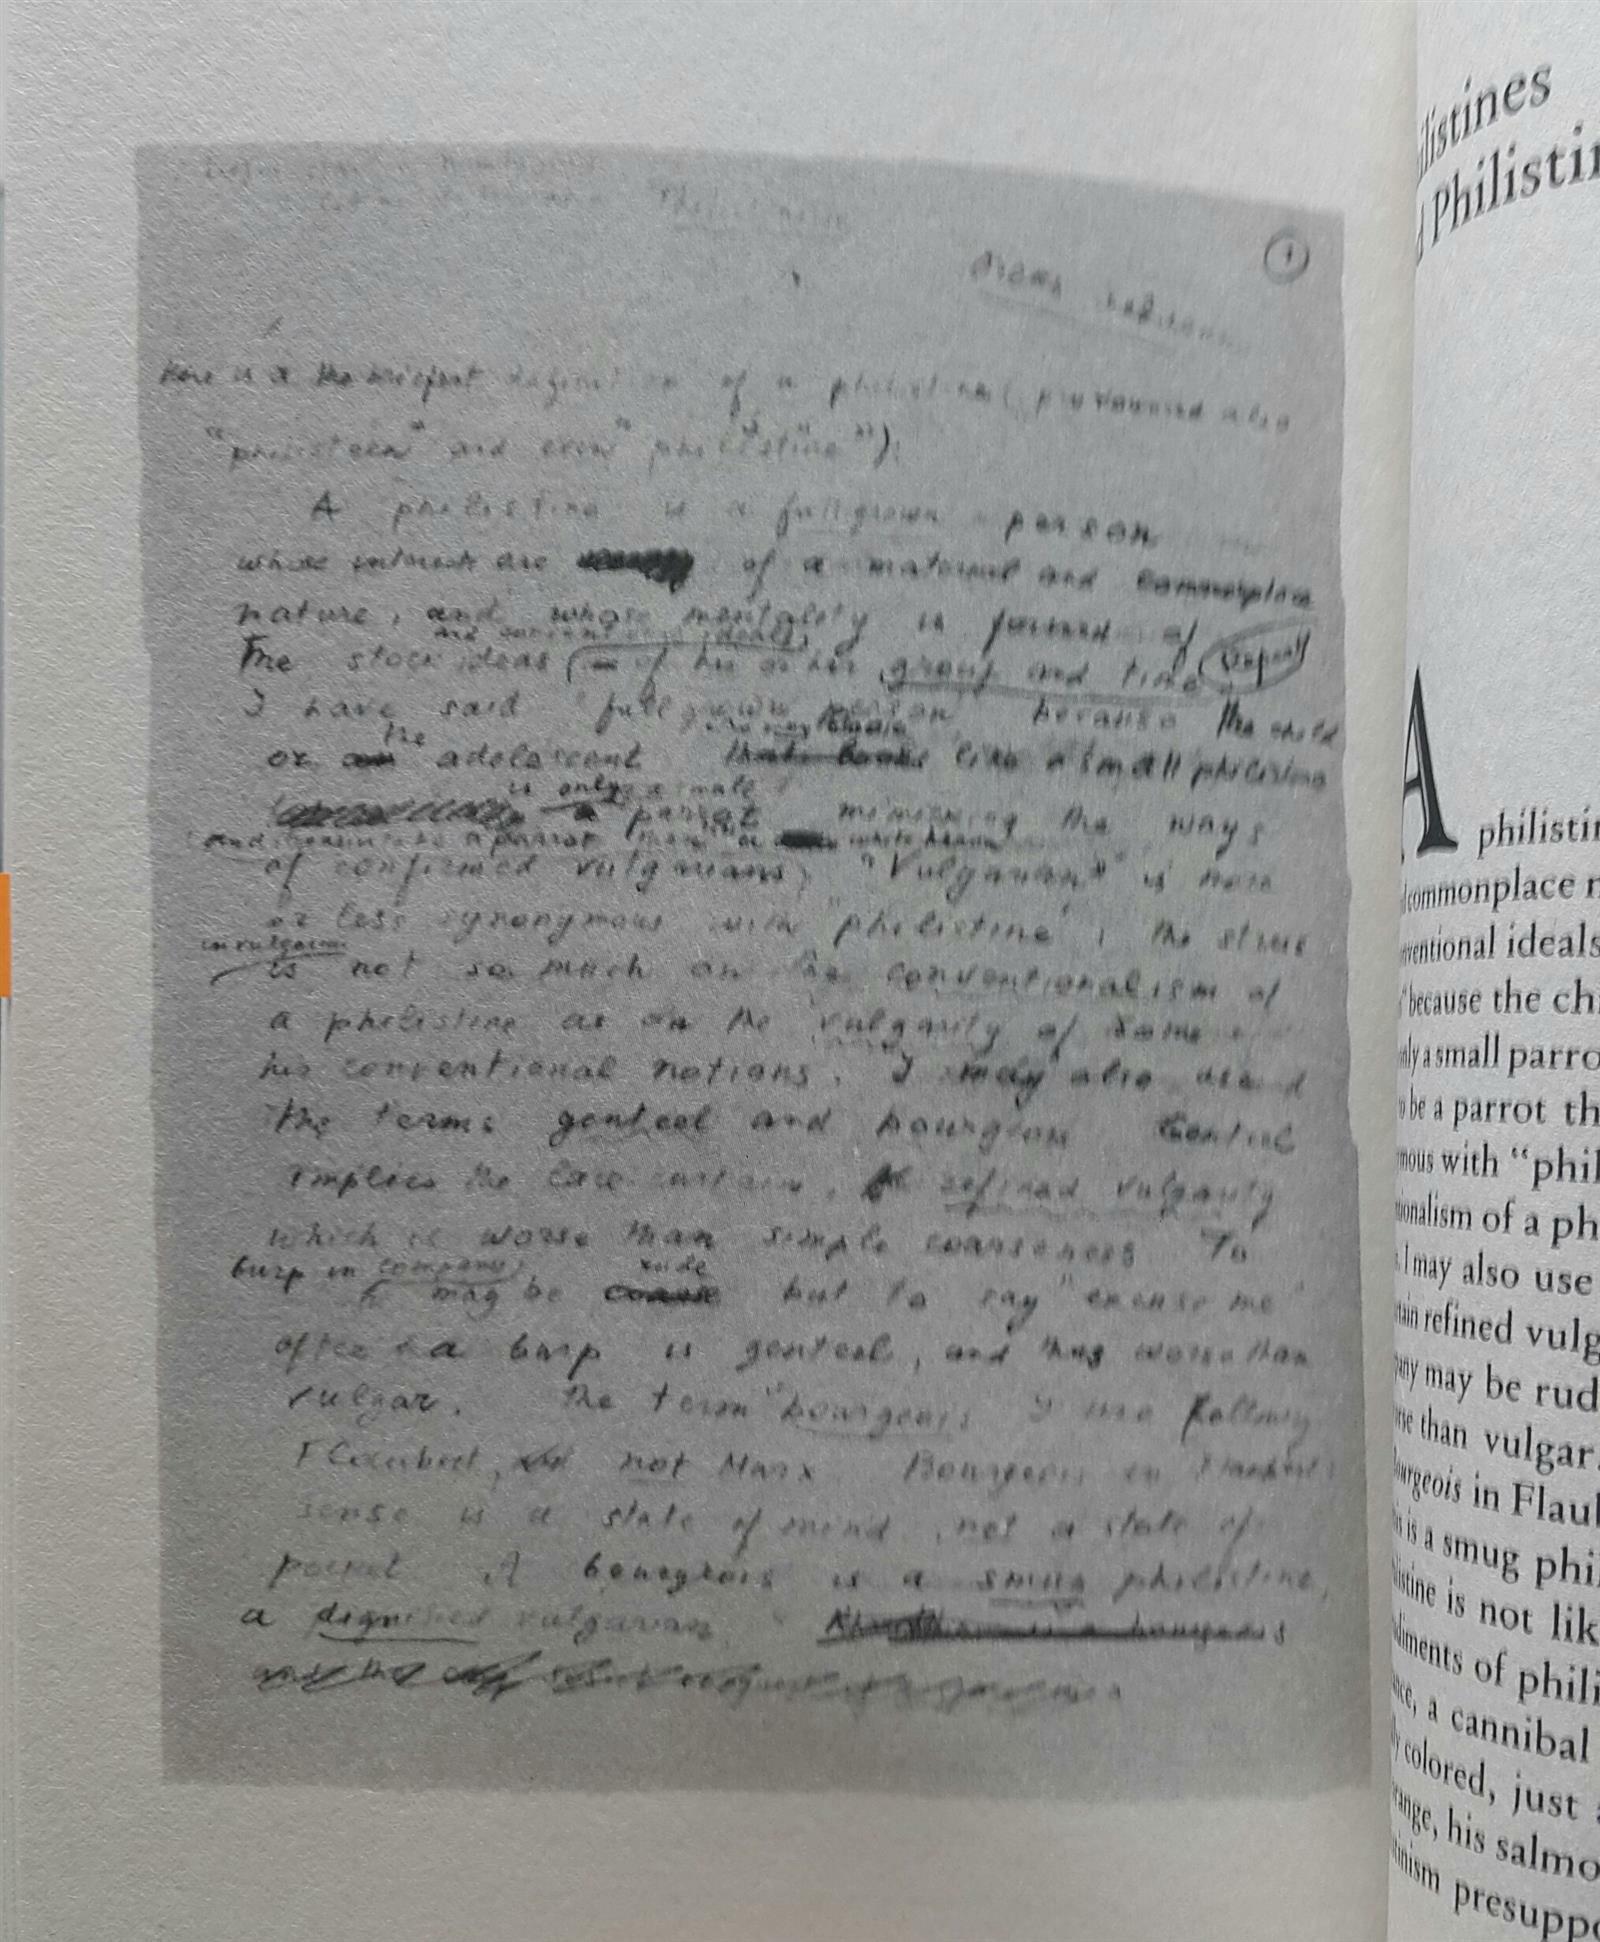 ①
Here is a the briefest definition of a philistine (pronounced also
"philisteen" and even "philistine"):
A philistine is a full grown person
whose interests are of a material and commonplace
nature, and whose mentality is formed of
and conventional ideals,
The stock ideas of his or her group and time. repeat
I have said "full grown person" because the child
he may look
or an the adolescent that looks like a small philistine
is only a small
a parrot mimicking the ways
and easier to be a parrot than a white heron
of confirmed vulgarians, "Vulgarian" is more
or less synonymous with "philistine", the stress
in vulgarian
is not so much on the conventionalism of
a philistine as on the vulgarity of some
his conventional notions. I may also use
the terms genteel and bourgeois Genteel
implies the lace-curtain, refined vulgarity
which is worse than simple coarseness To
burp in company rude
may be coarse but to say "excuse me"
after a burp is genteel, and thus worse than
vulgar. The term "bourgeois I use following
Flaubert, not Marx Bourgeois in Flaubert's
sense is a state of mind, not a state of
pocket A bourgeois is a smug philistine,
a dignified vulgarian is a bourgeois
listines
d Philistin
A philistin
d commonplace n
ventional ideals
" because the chi
nly a small parro
o be a parrot th
mous with "phil
tionalism of a ph
. I may also use
tain refined vulg
any may be rud
rse than vulgar.
Bourgeois in Flaul
is is a smug phil
listine is not lik
diments of phili
nce, a cannibal
y colored, just a
range, his salmo
tinism presuppo